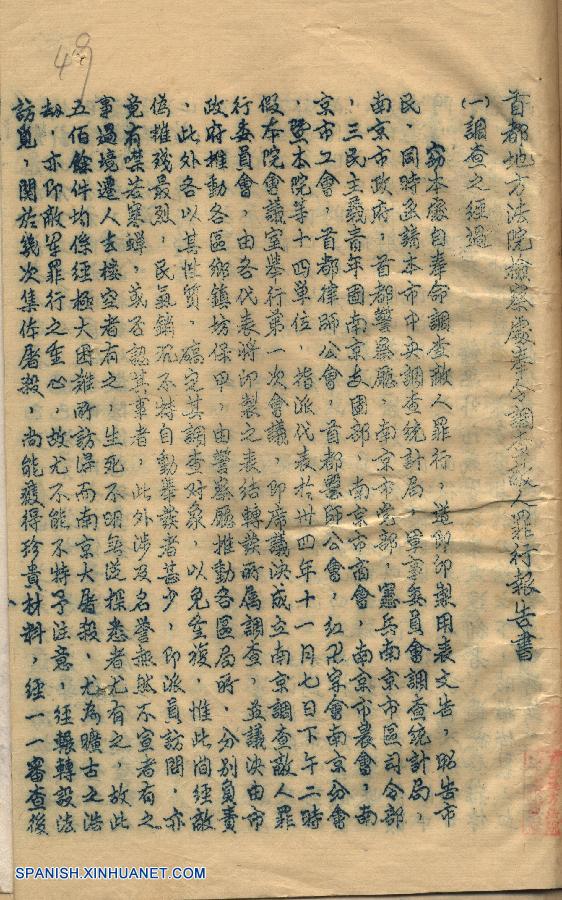 49
首都地方法院檢察處奉令調查敵人罪行報告書
(一)調查之經過
窃本處自奉命調查敵人罪行,遂即印製用表文告,昭告市
民,同時函請本市中央調查統計局,軍事委員會調查統計局,
南京市政府,首都警察廳,南京市党部,憲兵南京市區司令部
,三民主義青年團南京支團部,南京市商會,南京市農會,南
京市工會,首都律師公會,首都醫師公會,紅卍字會南京分會
,暨本院等十四單位,指派代表於卅四年十一月七日下午二時
假本院會議室举行第一次會議,即席議決成立南京調查敵人罪
行委員會,由各代表將印製之表結轉發所属調查,並議決由市
政府推動各區鄉鎮坊保甲,由警察廳推動各區局所,分别負責
,此外各以其性質,確定其調查对象,以免重複,惟此间經敵
偽摧殘最烈,民氣銷沉不特自動舉發者甚少,即派員訪問,亦
竟有噤若寒蟬,或否認其事者,此外涉及名譽赧然不宣者有之
事過境遷人去樓空者有之,生死不明無從探悉者尤有之,故此
五佰餘件均係經極大困難所訪得而南京大屠殺,尤為曠古之浩
劫,亦即敵軍罪行之重心,故尤不能不特予注意,經輾轉設法
訪覓,関於幾次集体屠殺,尚能獲得珍貴材料,經一一審查後
SPANISH.XINHUANET.COM